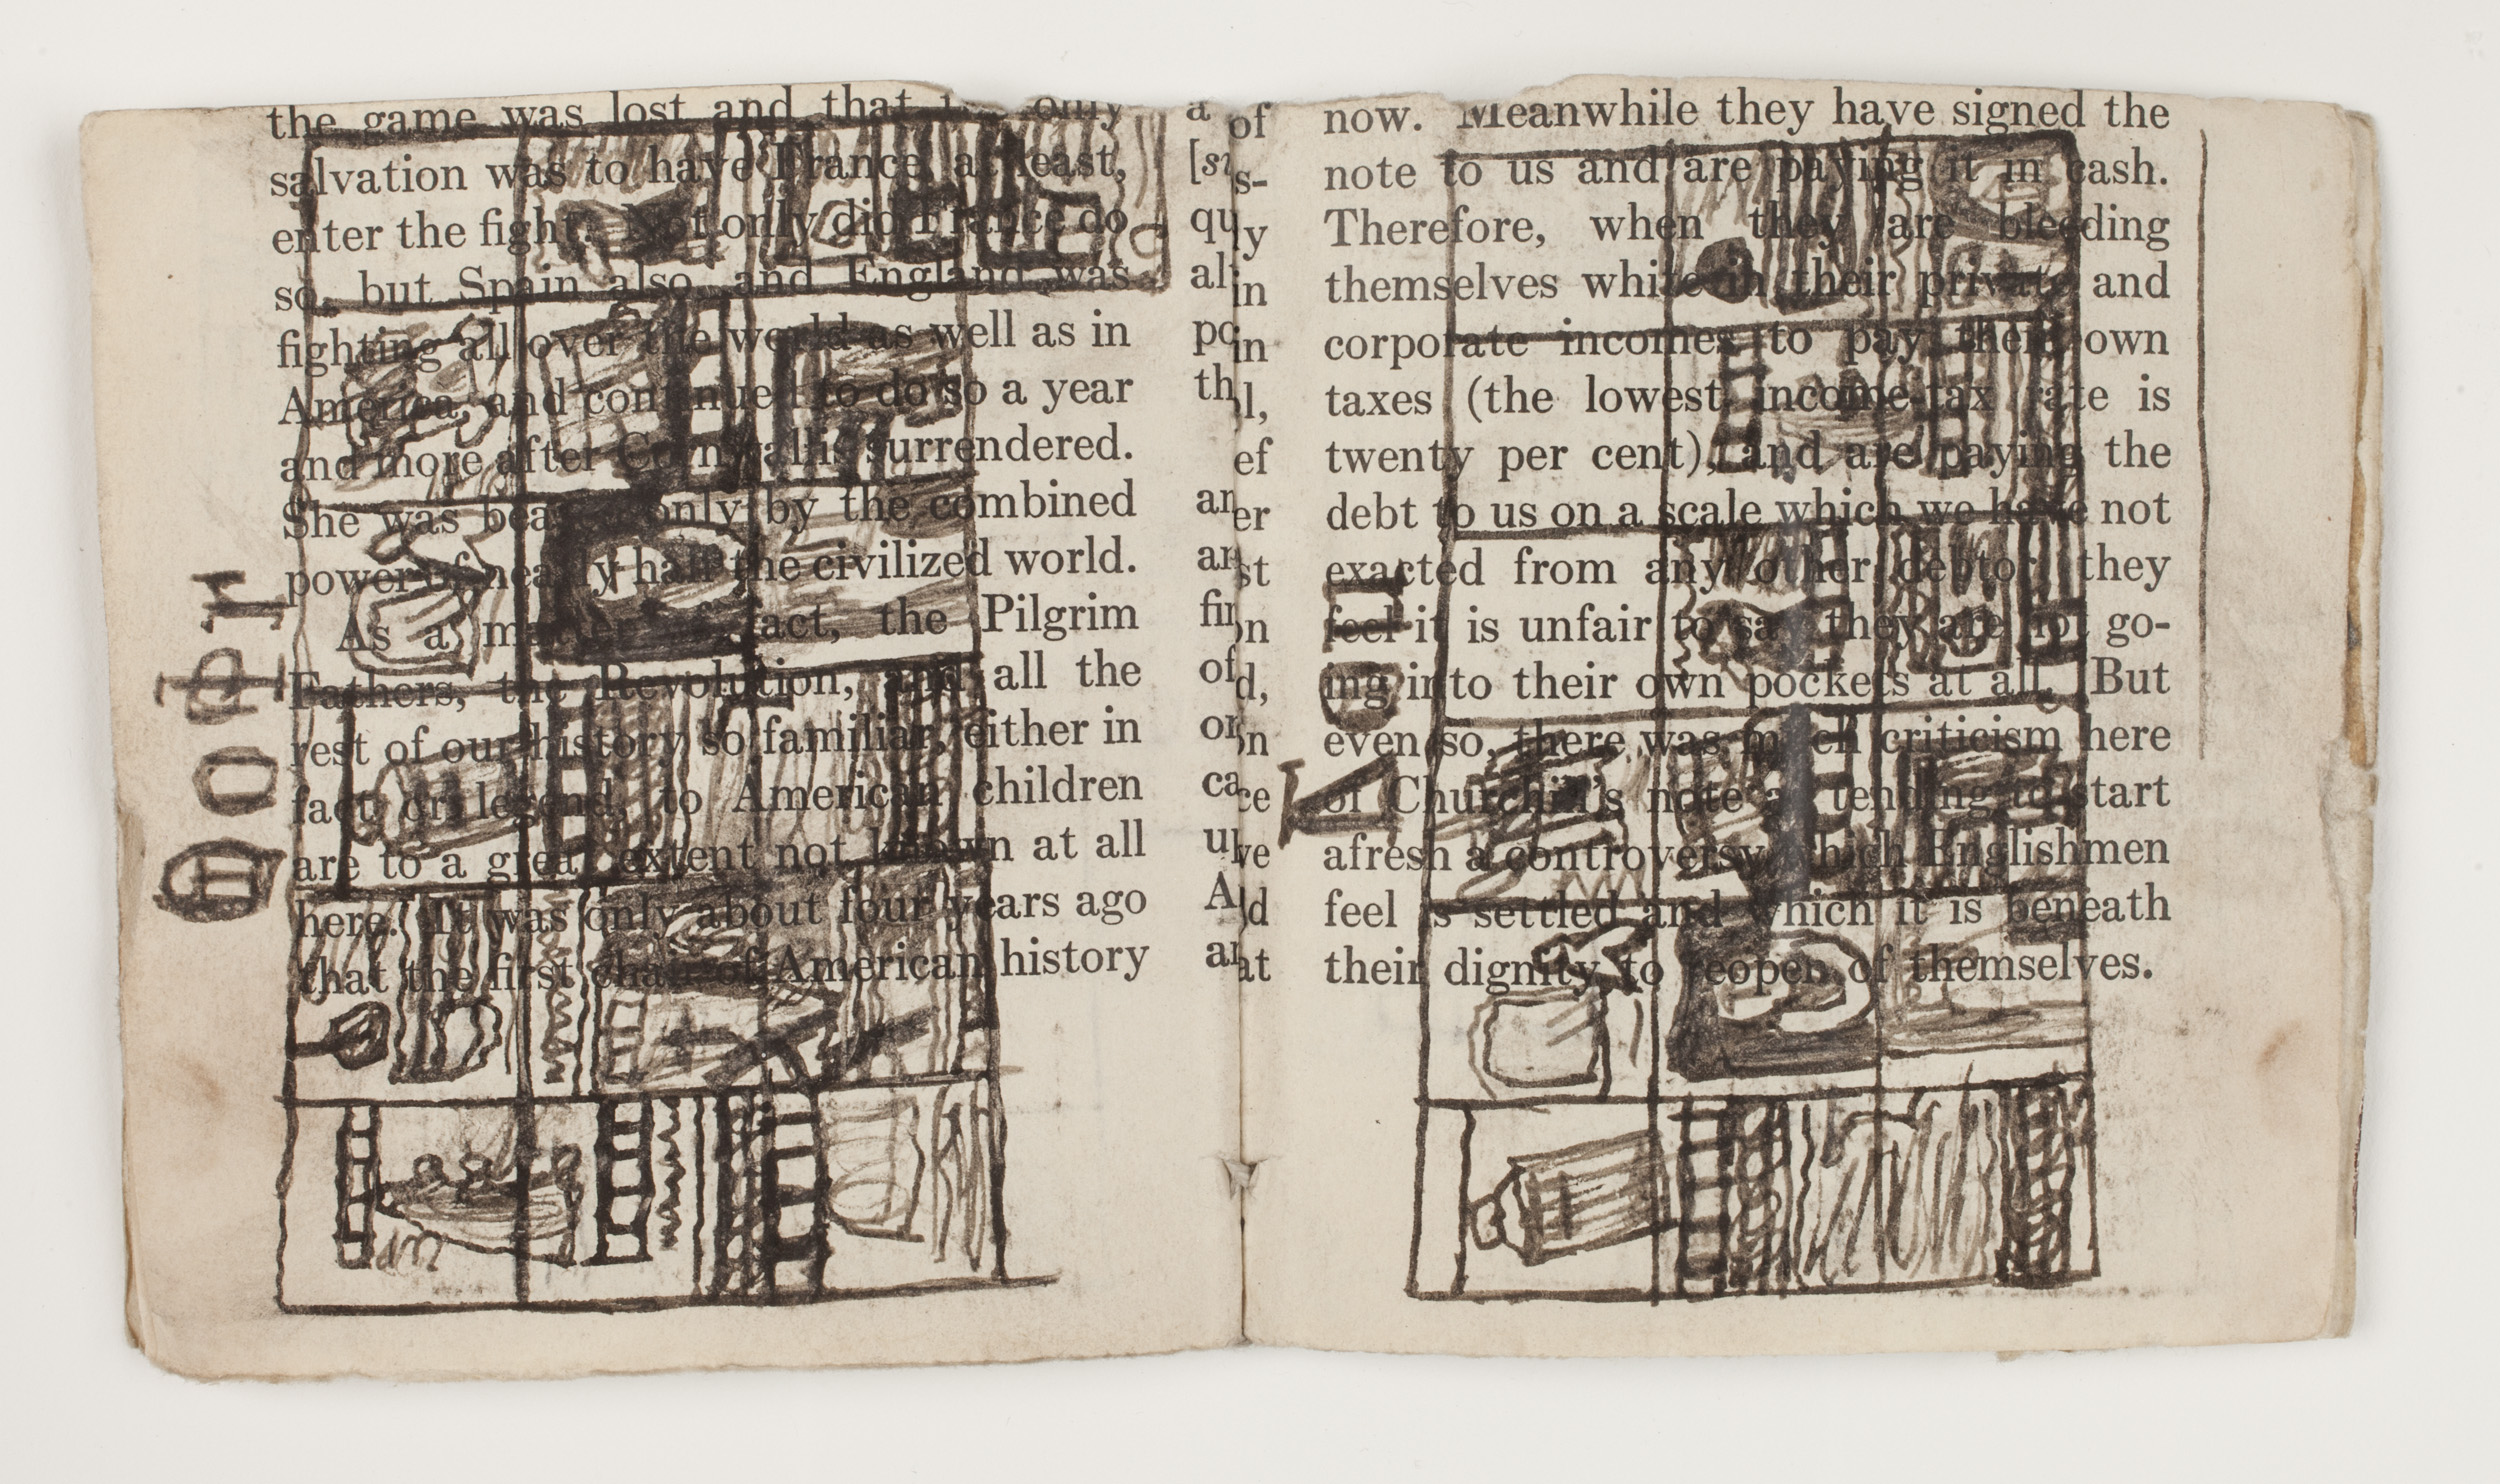 the game was lost and that only
salvation was to have France, at least,
enter the fight. Not only did France do
so, but Spain also, and England was
fighting all over the world as well as in
America, and continued to do so a year
and more after Cornwallis surrendered.
She was beaten only by the combined
power of nearly half the civilized world.
As a matter of fact, the Pilgrim
Fathers, the Revolution, and all the
rest of our history so familiar, either in
fact or legend, to American children
are to a great extent not known at all
here. It was only about four years ago
that the first chair of American history
a
qu
al
po
th
an
ar
fin
of
or
ca
A
al
of
s-
y
in
in
l,
ef
er
st
n
d,
n
ce
ve
ld
at
now. Meanwhile they have signed the
note to us and are paying it in cash.
Therefore, when they are bleeding
themselves white in their private and
corporate incomes to pay their own
taxes (the lowest income-tax rate is
twenty per cent), and are paying the
debt to us on a scale which we have not
exacted from any other debtor, they
feel it is unfair to say they are not go-
ing into their own pockets at all. But
even so, there was much criticism here
of Churchill's note as tending to start
afresh a controversy which Englishmen
feel is settled and which it is beneath
their dignity to reopen of themselves.